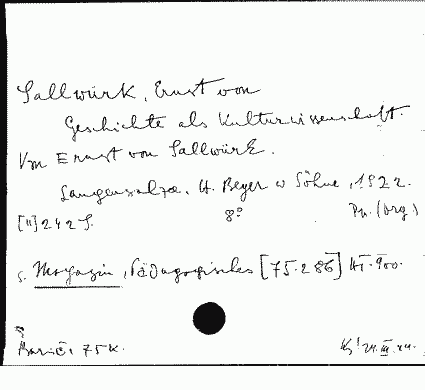 Sallwürk, Ernst von
Geschichte als Kulturwissenschaft.
Von Ernst von Sallwürk.
Langensalza, H. Beyer u Söhne, 1922.
[II] 242 S. 8° Pn. (org)
s. Magazin, Pädagogisches [75.286] HI. 900.
75 K. 24. III. 24.